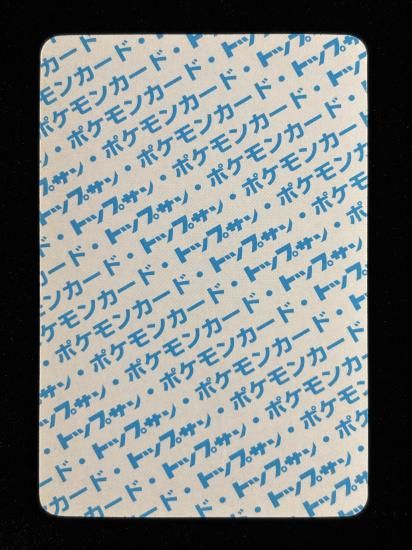 ンカード・トップサン
ケモンカード・トップサン・
ポケモンカード・トップサン・
サン・ポケモンカード・トップサン
トップサン・ポケモンカード・
・トップサン・ポケモンカード
ード・トップサン・ポケモンカ
ンカード・トップサン・ポケモ
ケモンカード・トップサン・
ポケモンカード・トップサン・
サン・ポケモンカード・トップサン
トップサン・ポケモンカード・
・トップサン・ポケモンカード
ード・トップサン・ポケモン
ンカード・トップサン・ポ